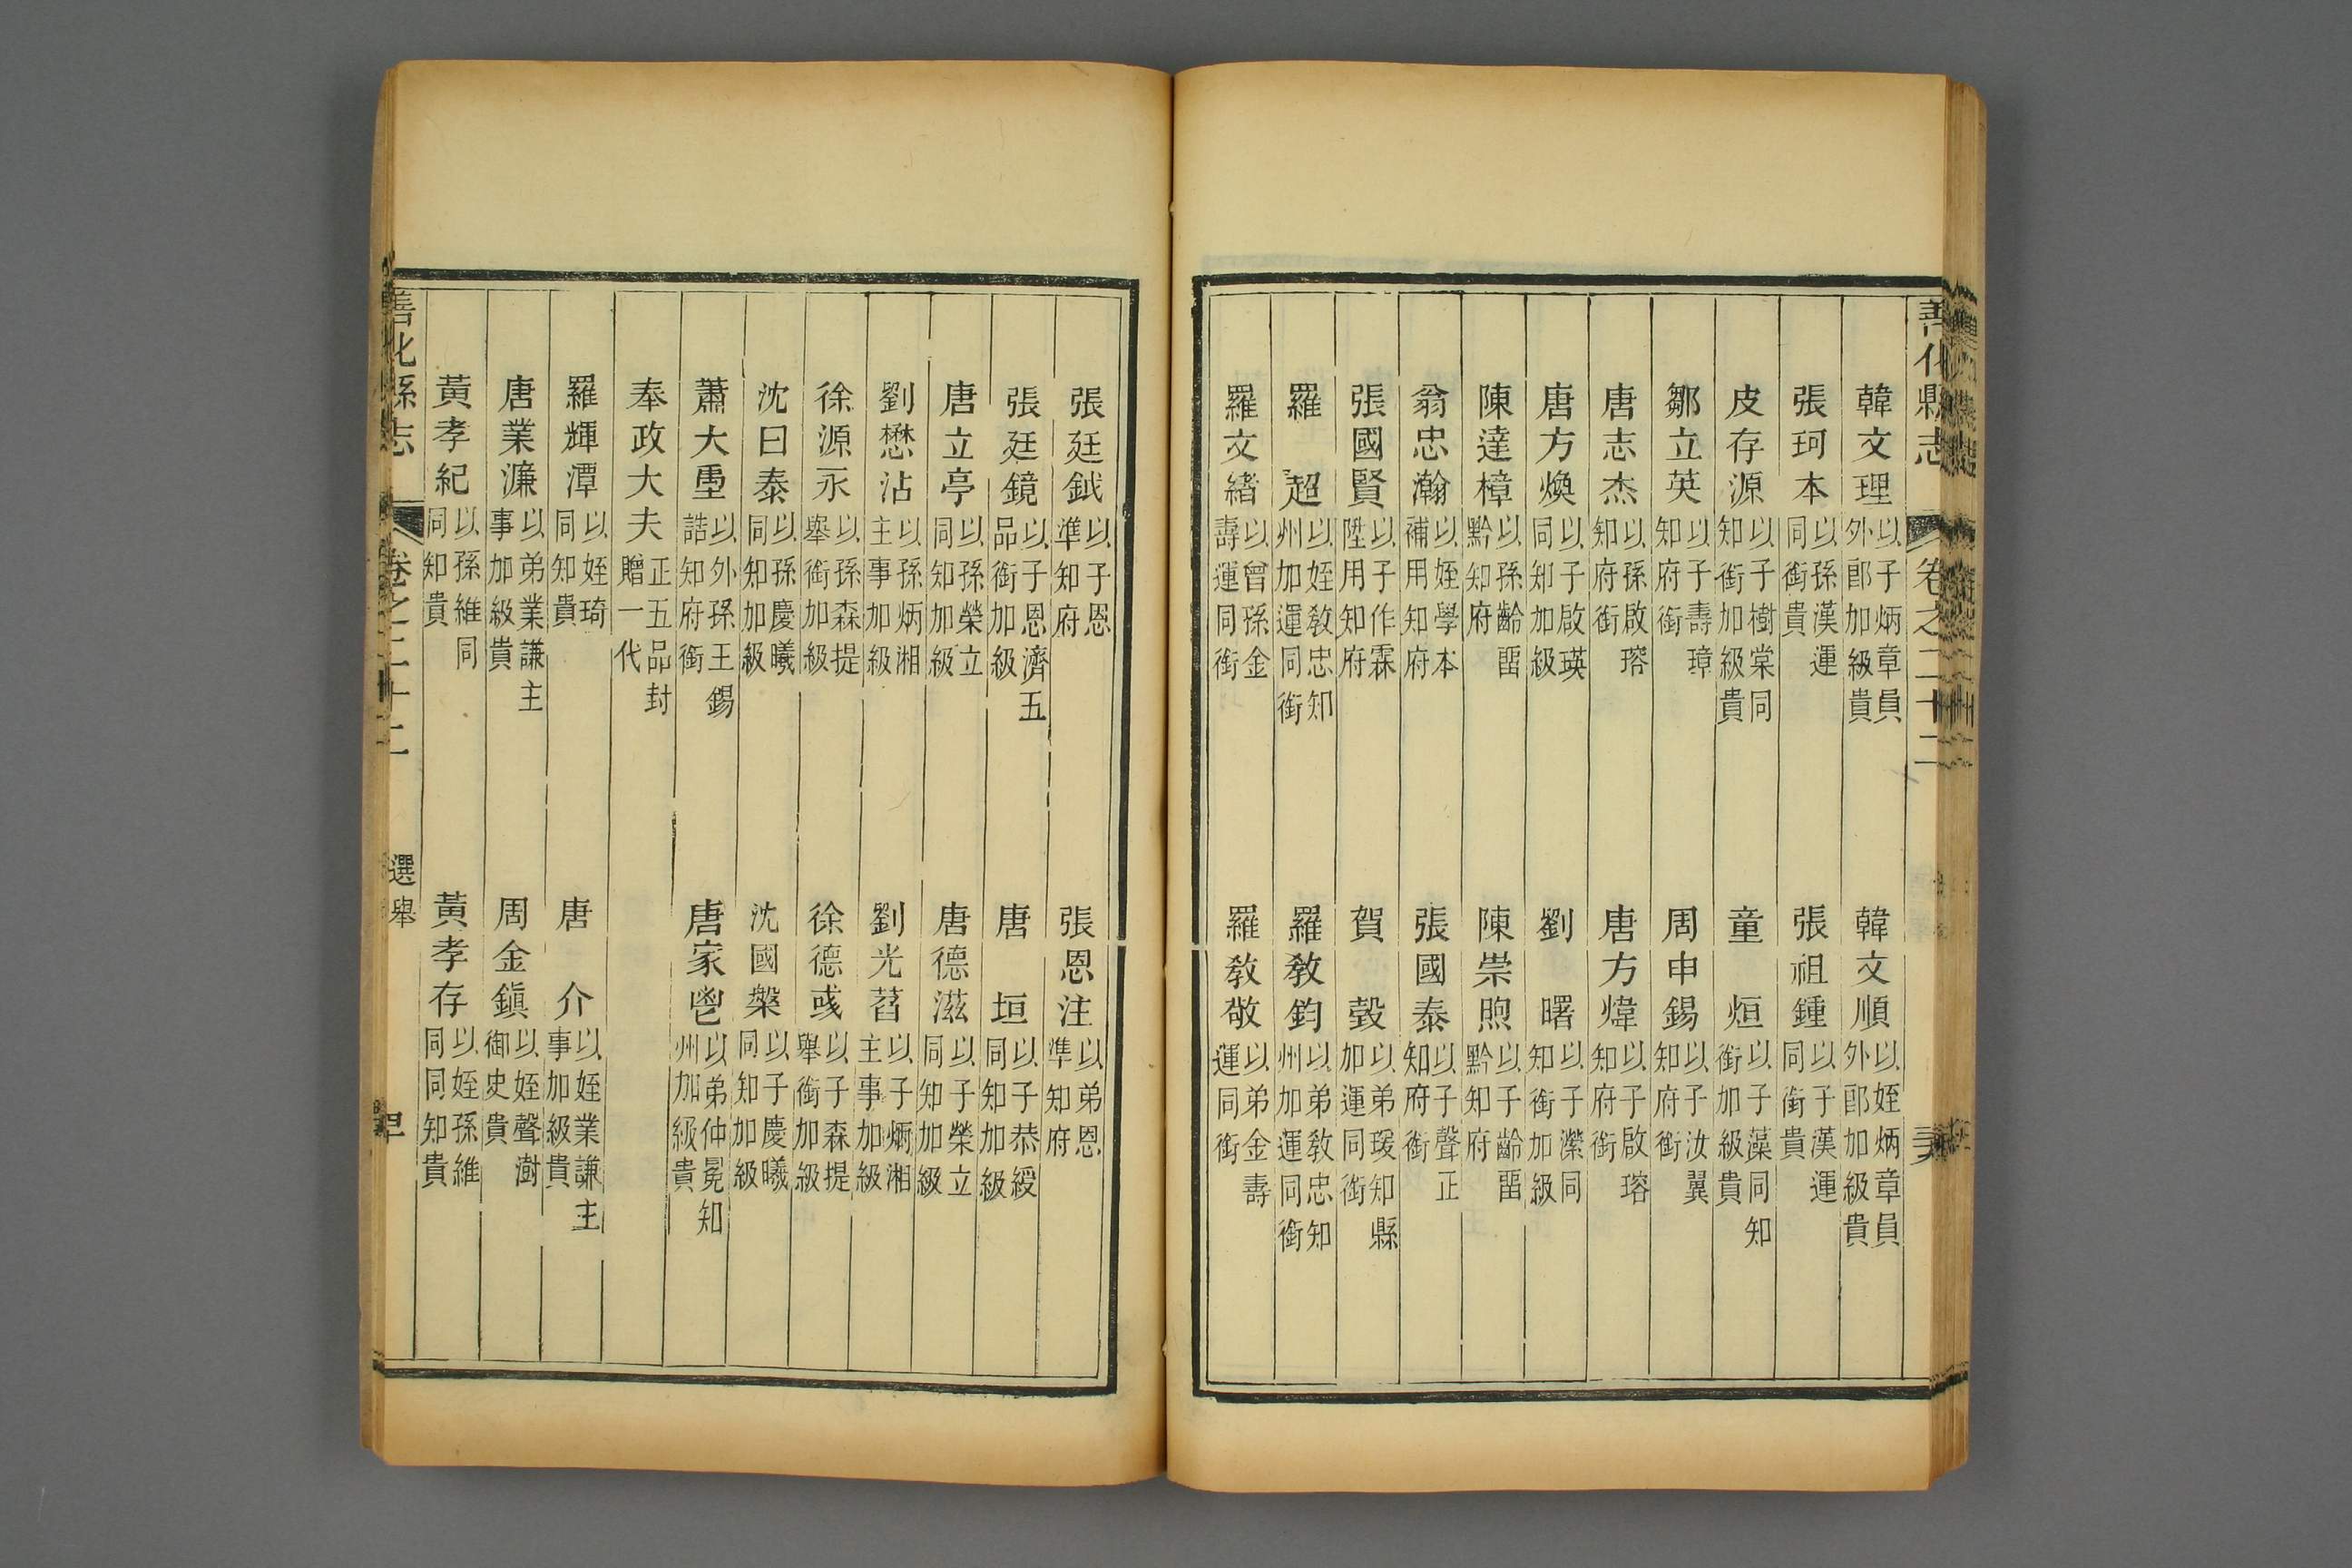 善化縣志 卷之二十二
韓文理 以子炳章員外郎加級貴 韓文順 以姪炳章員外郎加級貴
張珂本 以孫漢運同銜貴 張祖鍾 以子漢運同銜貴
皮存源 以子樹棠同知銜加級貴 童烜 以子藻同知銜加級貴
鄒立英 以子壽璋知府銜 周申錫 以子汝翼知府銜
唐志杰 以孫啟瑢知府銜 唐方煒 以子啟瑢知府銜
唐方煥 以子啟瑛同知加級 劉曙 以子濴同知銜加級
陳達樟 以孫齡䍃黔知府 陳崇煦 以子齡䍃黔知府
翁忠瀚 以姪學本補用知府 張國泰 以子聲正知府銜
張國賢 以子作霖陞用知府 賀瑴 以弟瑗知縣加運同銜
羅超 以姪敎忠知州加運同銜 羅敎鈞 以弟敎忠知州加運同銜
羅文緒 以曾孫金壽運同銜 羅敎敬 以弟金壽運同銜
張廷鉞 以子恩準知府 張恩注 以弟恩準知府
張廷鏡 以子恩濟五品銜加級 唐垣 以子恭綬同知加級
唐立亭 以孫榮立同知加級 唐德滋 以子榮立同知加級
劉懋沾 以孫炳湘主事加級 劉光萅 以子炳湘主事加級
徐源永 以孫森提舉銜加級 徐德彧 以子森提舉銜加級
沈曰泰 以孫慶曦同知加級 沈國槃 以子慶曦同知加級
蕭大重 以外孫王錫誥知府銜 唐家鬯 以弟仲冕知州加級貴
奉政大夫 正五品封贈一代
羅輝潭 以姪琦同知貴 唐介 以姪業謙主事加級貴
唐業濂 以弟業謙主事加級貴 周金鎭 以姪聲澍御史貴
黃孝紀 以孫維同同知貴 黃孝存 以姪孫維同同知貴
善化縣志 卷之二十二 選舉